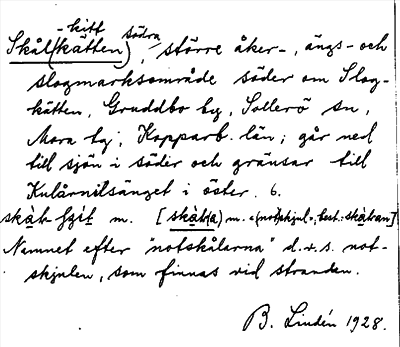 -kitt södra
Skål(kätten), större åker-, ängs- och
slogmarksområde söder om Slog-
kätten, Gruddbo by, Sollerö sn,
Mora tg, Kopparb. län; går ned
till sjön i söder och gränsar till
Kulårnilsänget i öster. 6.
m. m.
Namnet efter "notskålarna" d.v.s. not-
skjulen, som finnas vid stranden.
B. Lindén 1928.